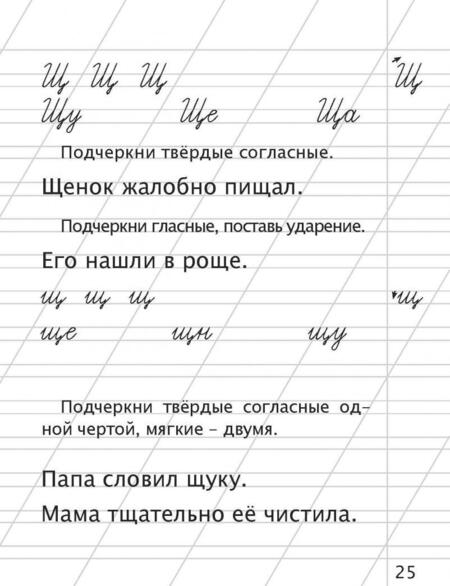 Щ Щ Щ Щ
Щу Ще Ща
Подчеркни твёрдые согласные.
Щенок жалобно пищал.
Подчеркни гласные, поставь ударение.
Его нашли в роще.
щ щ щ щ
ще щн щу
Подчеркни твёрдые согласные од-
ной чертой, мягкие – двумя.
Папа словил щуку.
Мама тщательно её чистила.
25